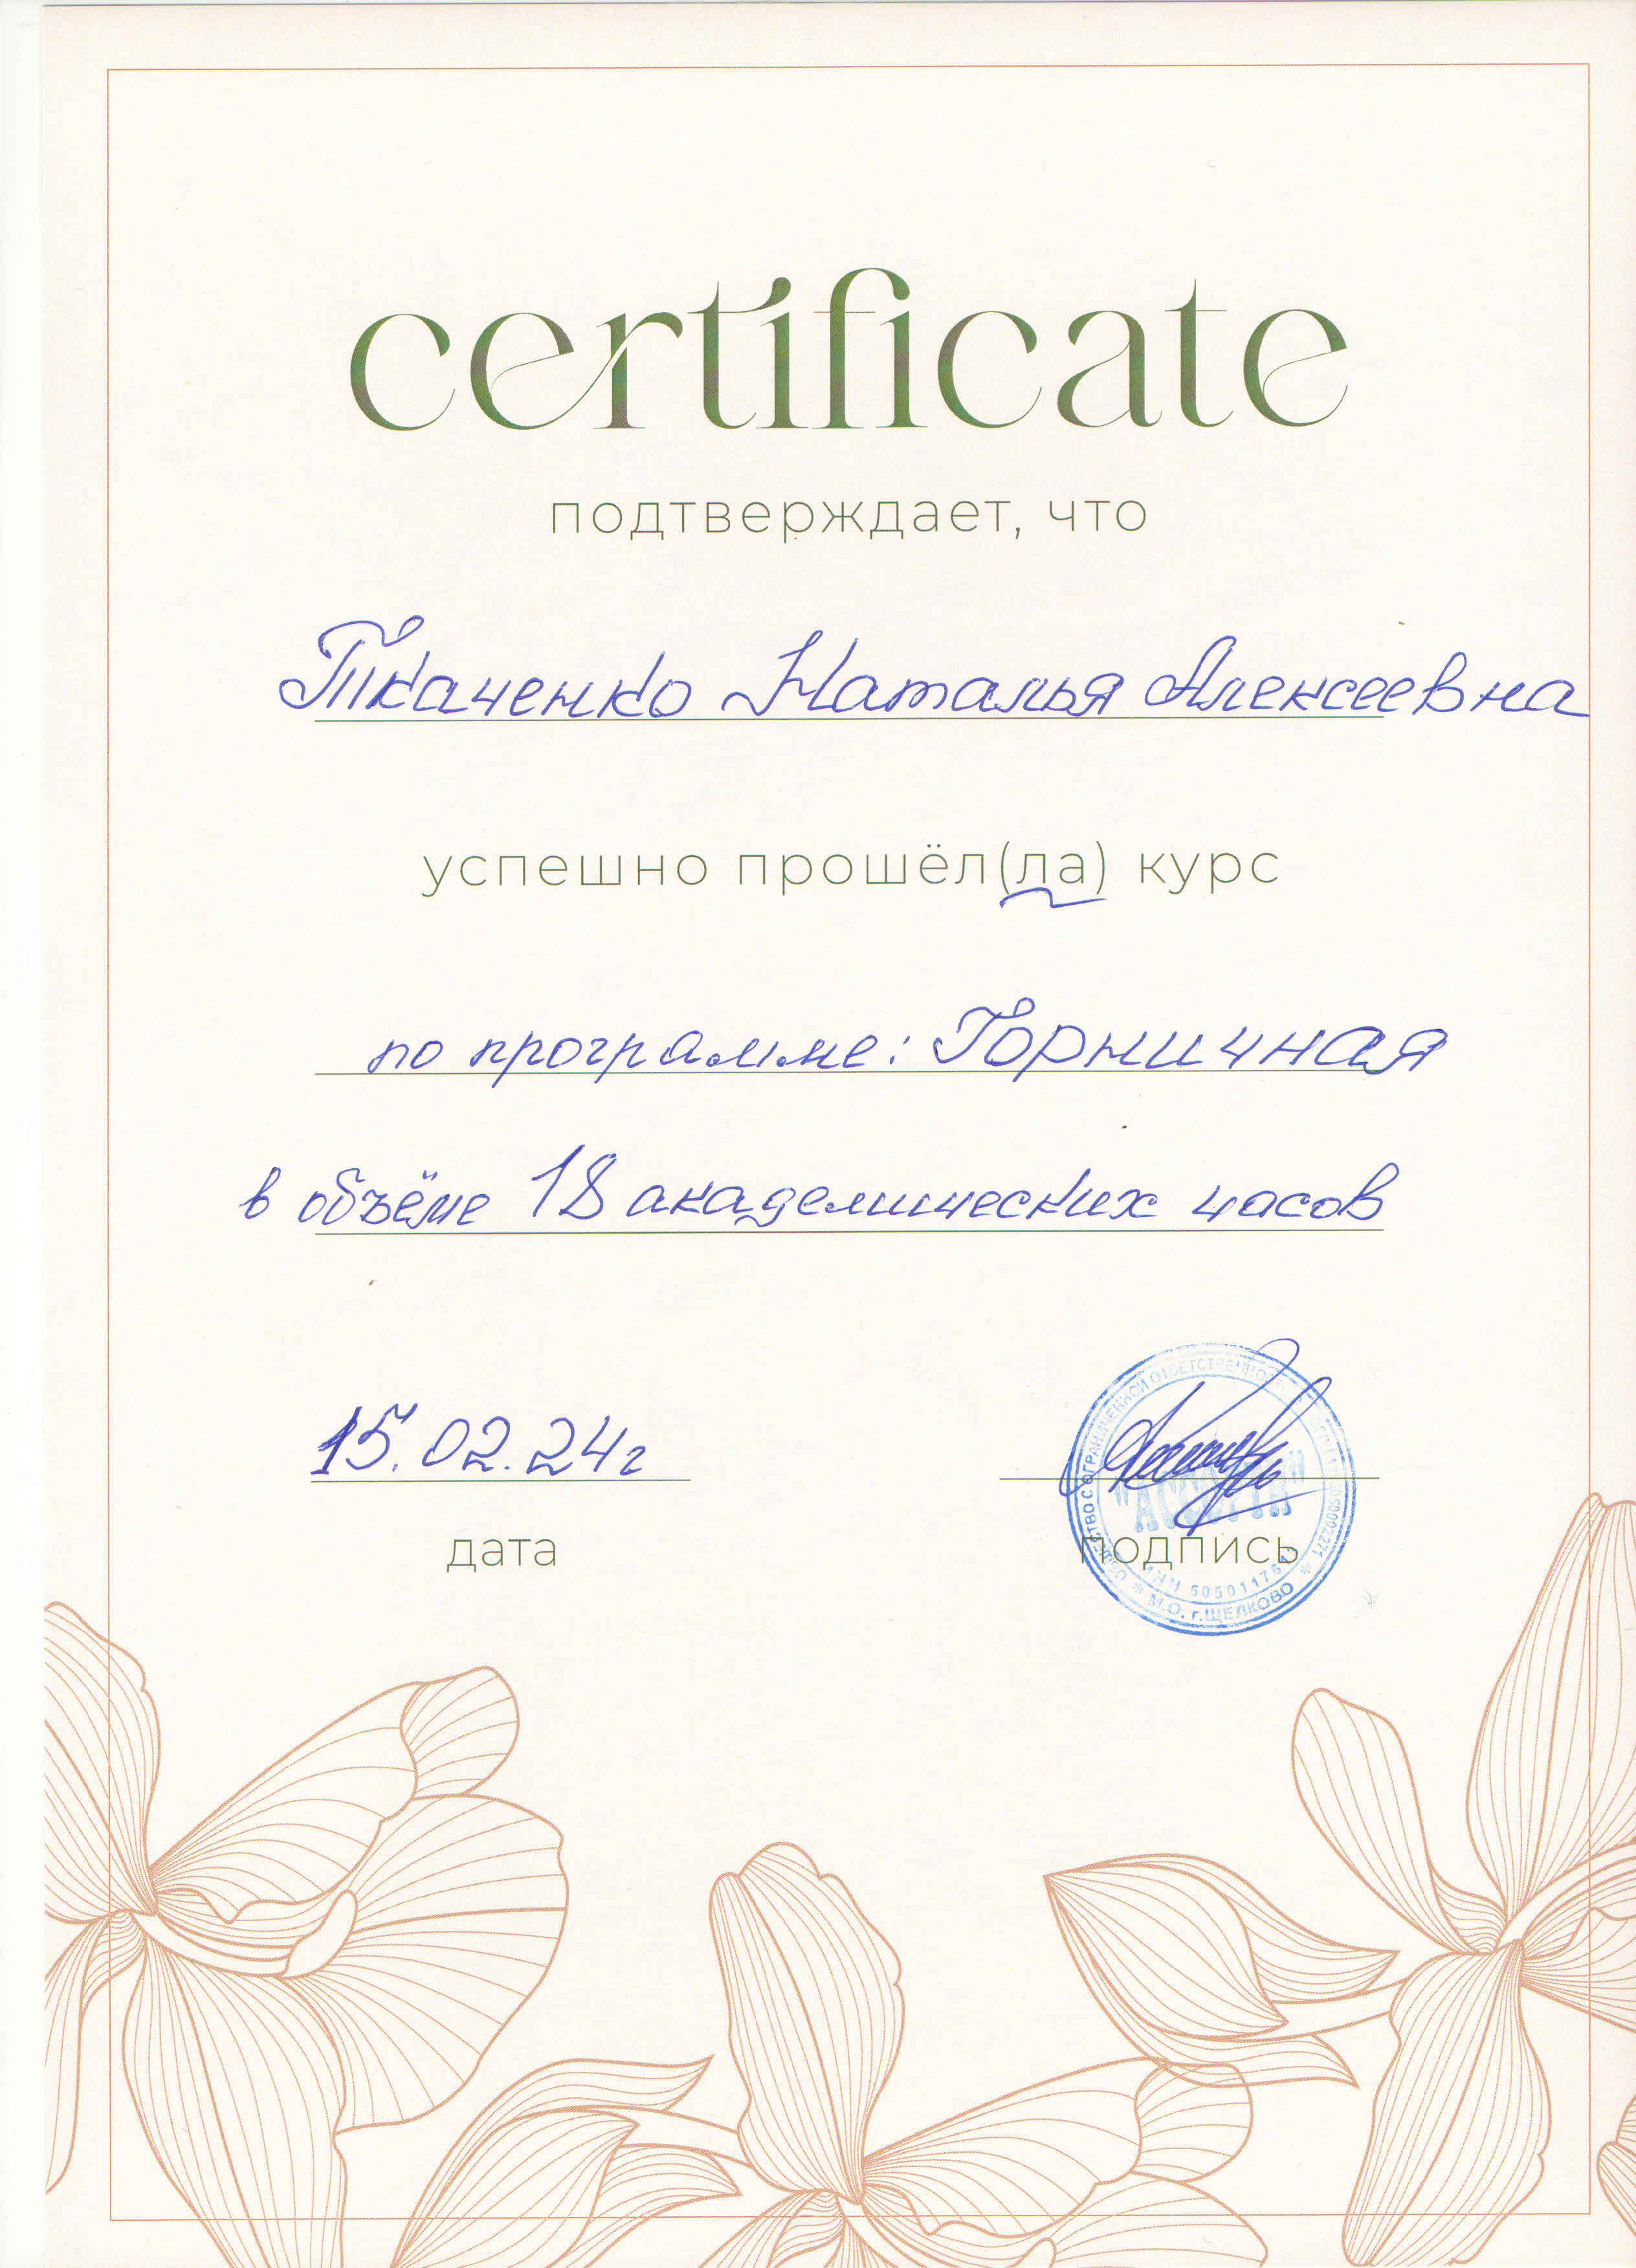 certificate
подтверждает, что
Ткаченко Наталья Алексеевна
успешно прошёл(ла) курс
по программе: Горничная
в объёме 18 академических часов
15.02.24г
дата
подпись
ОБЩЕСТВО С ОГРАНИЧЕННОЙ ОТВЕТСТВЕННОСТЬЮ
М.О. г.ЩЕЛКОВО